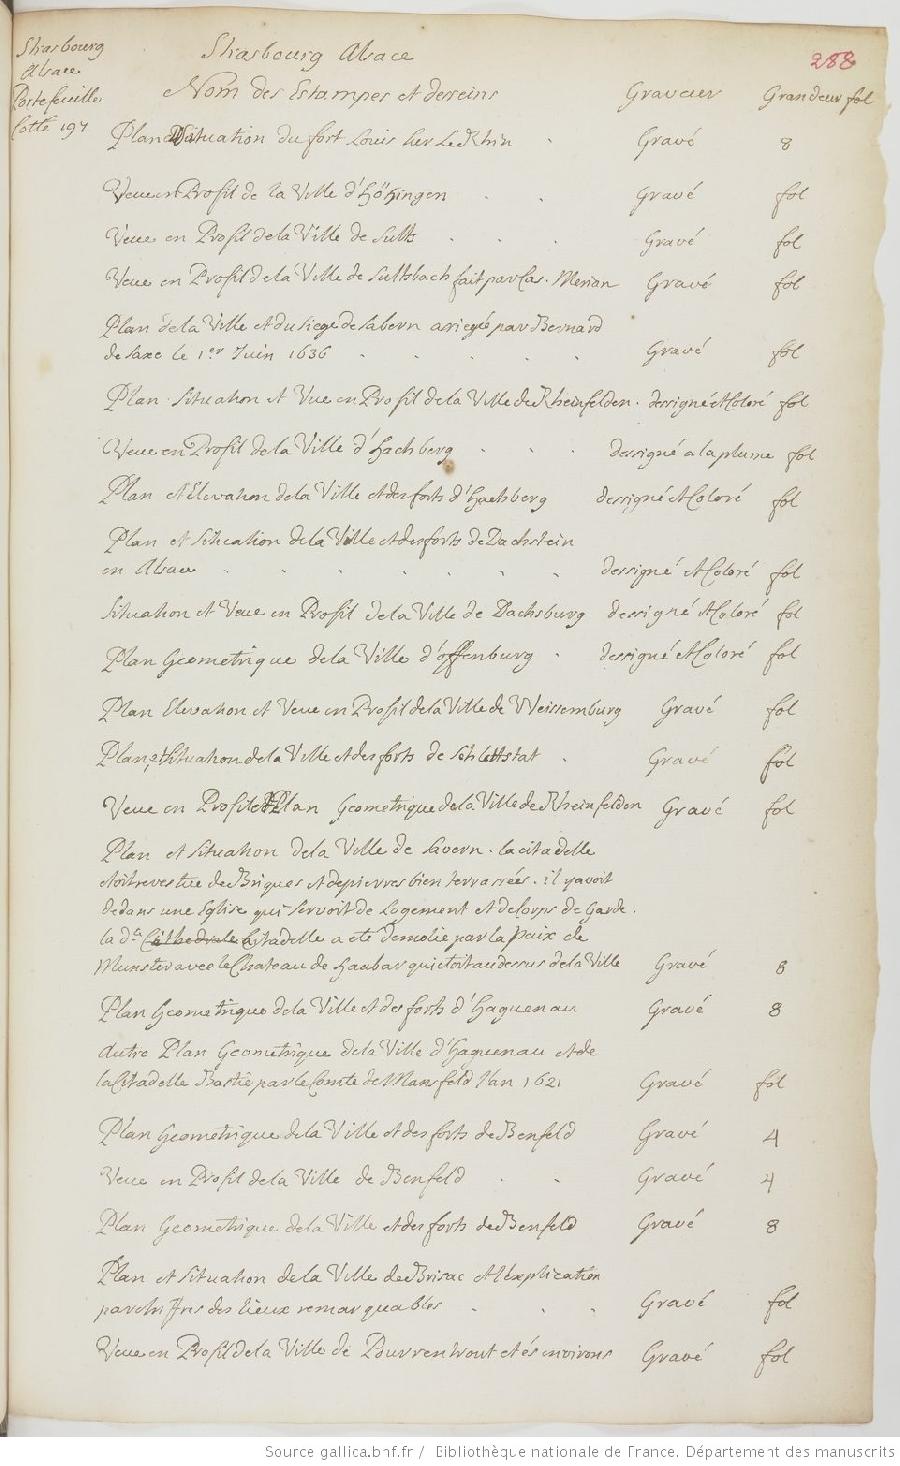 Strasbourg
Alsace
Portefeuille
Cotté 197
Strasbourg Alsace
288
Nom des Estampes et desseins Graveur Grandeur fol
Plan et Situation du fort Louis sur Le Rhin Gravé 8
Veue en Profil de la Ville d' Gravé fol
Veue en Profil de la Ville de Sultz Gravé fol
Veue en Profil de la Ville de Sultzbach fait par Cas. Merian Gravé fol
Plan de la Ville et du siege de Sabern assiegé par Bernard
de Saxe le 1er Juin 1636 Gravé fol
Plan Situation et Vue en Profil de la Ville de Rheinfelden. dessigné et Coloré fol
Veue en Profil de la Ville d'Hachberg dessigné a la plume fol
Plan et Elevation de la Ville et des forts d'Hachberg dessigné et Coloré fol
Plan et Situation de la Ville et des forts de Dachstein
en Alsace dessigné et Coloré fol
Situation et Veue en Profil de la Ville de Dachsburg dessigné et Coloré fol
Plan Geometrique de la Ville d'offenburg dessigné et Coloré fol
Plan Elevation et Veue en Profil de la Ville de Weissemburg Gravé fol
Plan et Situation de la Ville et des forts de Schlettstat Gravé fol
Veue en Profil et Plan Geometrique de la Ville de Rheinfelden Gravé fol
Plan et Situation de la Ville de Savern. la citadelle
etoit revestue de Briques et de pierres bien terrassées. il y avoit
dedans une Eglise qui servoit de Logement et de Corps de Garde.
la de. Cathedrale Citadelle a eté demolie par la Paix de
Munster avec le Chateau de Haubar qui etoit au dessus de la Ville Gravé 8
Plan Geometrique de la Ville et des forts d'Haguenau Gravé 8
Autre Plan Geometrique de la Ville d'Haguenau et de
la Citadelle Bastie par le Comte de Mansfeld l'an 1621 Gravé fol
Plan Geometrique de la Ville et des forts de Benfeld Gravé 4
Veue en Profil de la Ville de Benfeld Gravé 4
Plan Geometrique de la Ville et des forts de Benfeld Gravé 8
Plan et Situation de la Ville de Brisac et l'explication
par chiffres des lieux remarquables Gravé fol
Veue en Profil de la Ville de Pourrentrout et és environs Gravé fol
Source gallica.bnf.fr / Bibliothèque nationale de France. Département des manuscrits